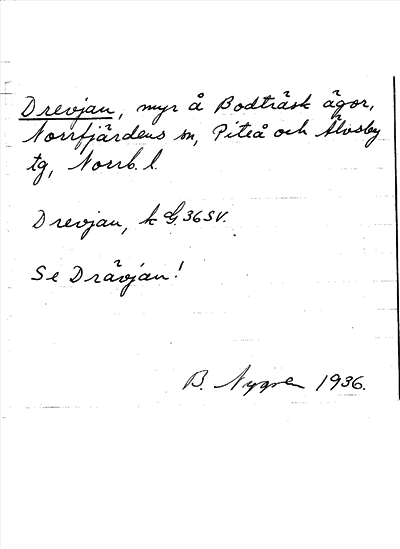 Drevjan, myr å Bodträsk ägor,
Norrfjärdens sn, Piteå och Älvsby
tg, Norrb. l.
Drevjan, k G. 36 SV.
Se Drävjan!
B. Nygren 1936.